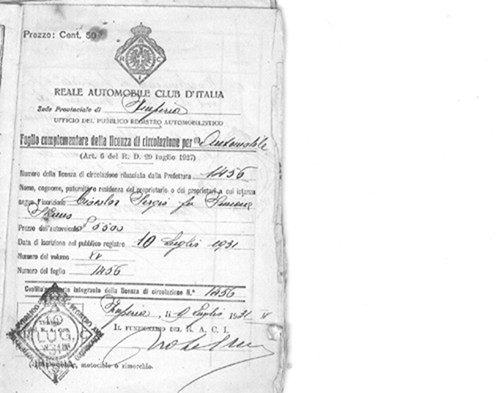 Prezzo: Cent. 50
R A C I
REALE AUTOMOBILE CLUB D'ITALIA
Sede Provinciale di Imperia
UFFICIO DEL PUBBLICO REGISTRO AUTOMOBILISTICO
Foglio complementare della licenza di circolazione per (1) Automobile
(Art. 6 del R. D. 29 luglio 1927)
Numero della licenza di circolazione rilasciata dalla Prefettura 1456
Nome, cognome, paternità e residenza del proprietario o dei proprietari a cui istanza
segue l'iscrizione fu
Prezzo dell'autoveicolo 5500
Data di iscrizione nel pubblico registro 10 Luglio 1931
Numero del volume XV
Numero del foglio 1456
Costituisce parte integrante della licenza di circolazione N.° 1456
Imperia, li Luglio 1931
IL FUNZIONARIO DEL R. A. C. I.
LUG.
(1) Automobile, motociclo o rimorchio.